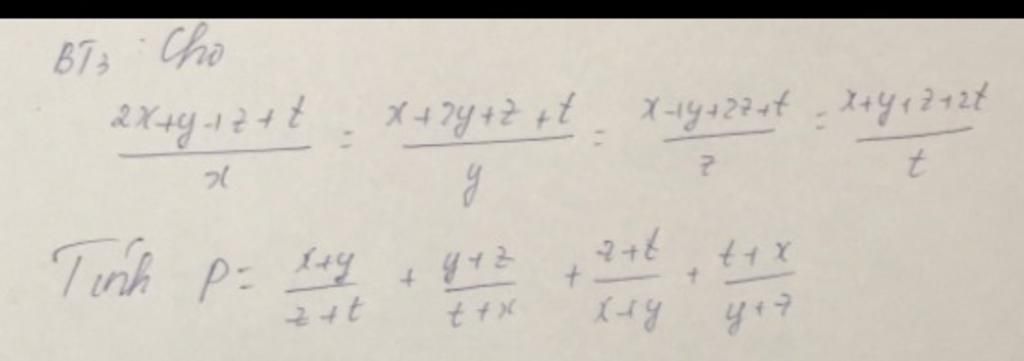 BT3 : Cho
2x+y+z+t/x = x+2y+z+t/y = x+y+2z+t/z = x+y+z+2t/t
Tính P = x+y/z+t + y+z/t+x + z+t/x+y + t+x/y+z